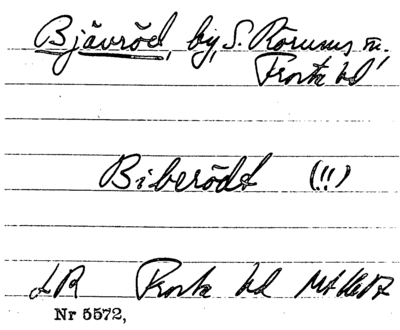 Bjävröd, by, S. Rörums sn.
Frosta hd
Biberödt (!!)
LR Frosta hd
Nr 5572,